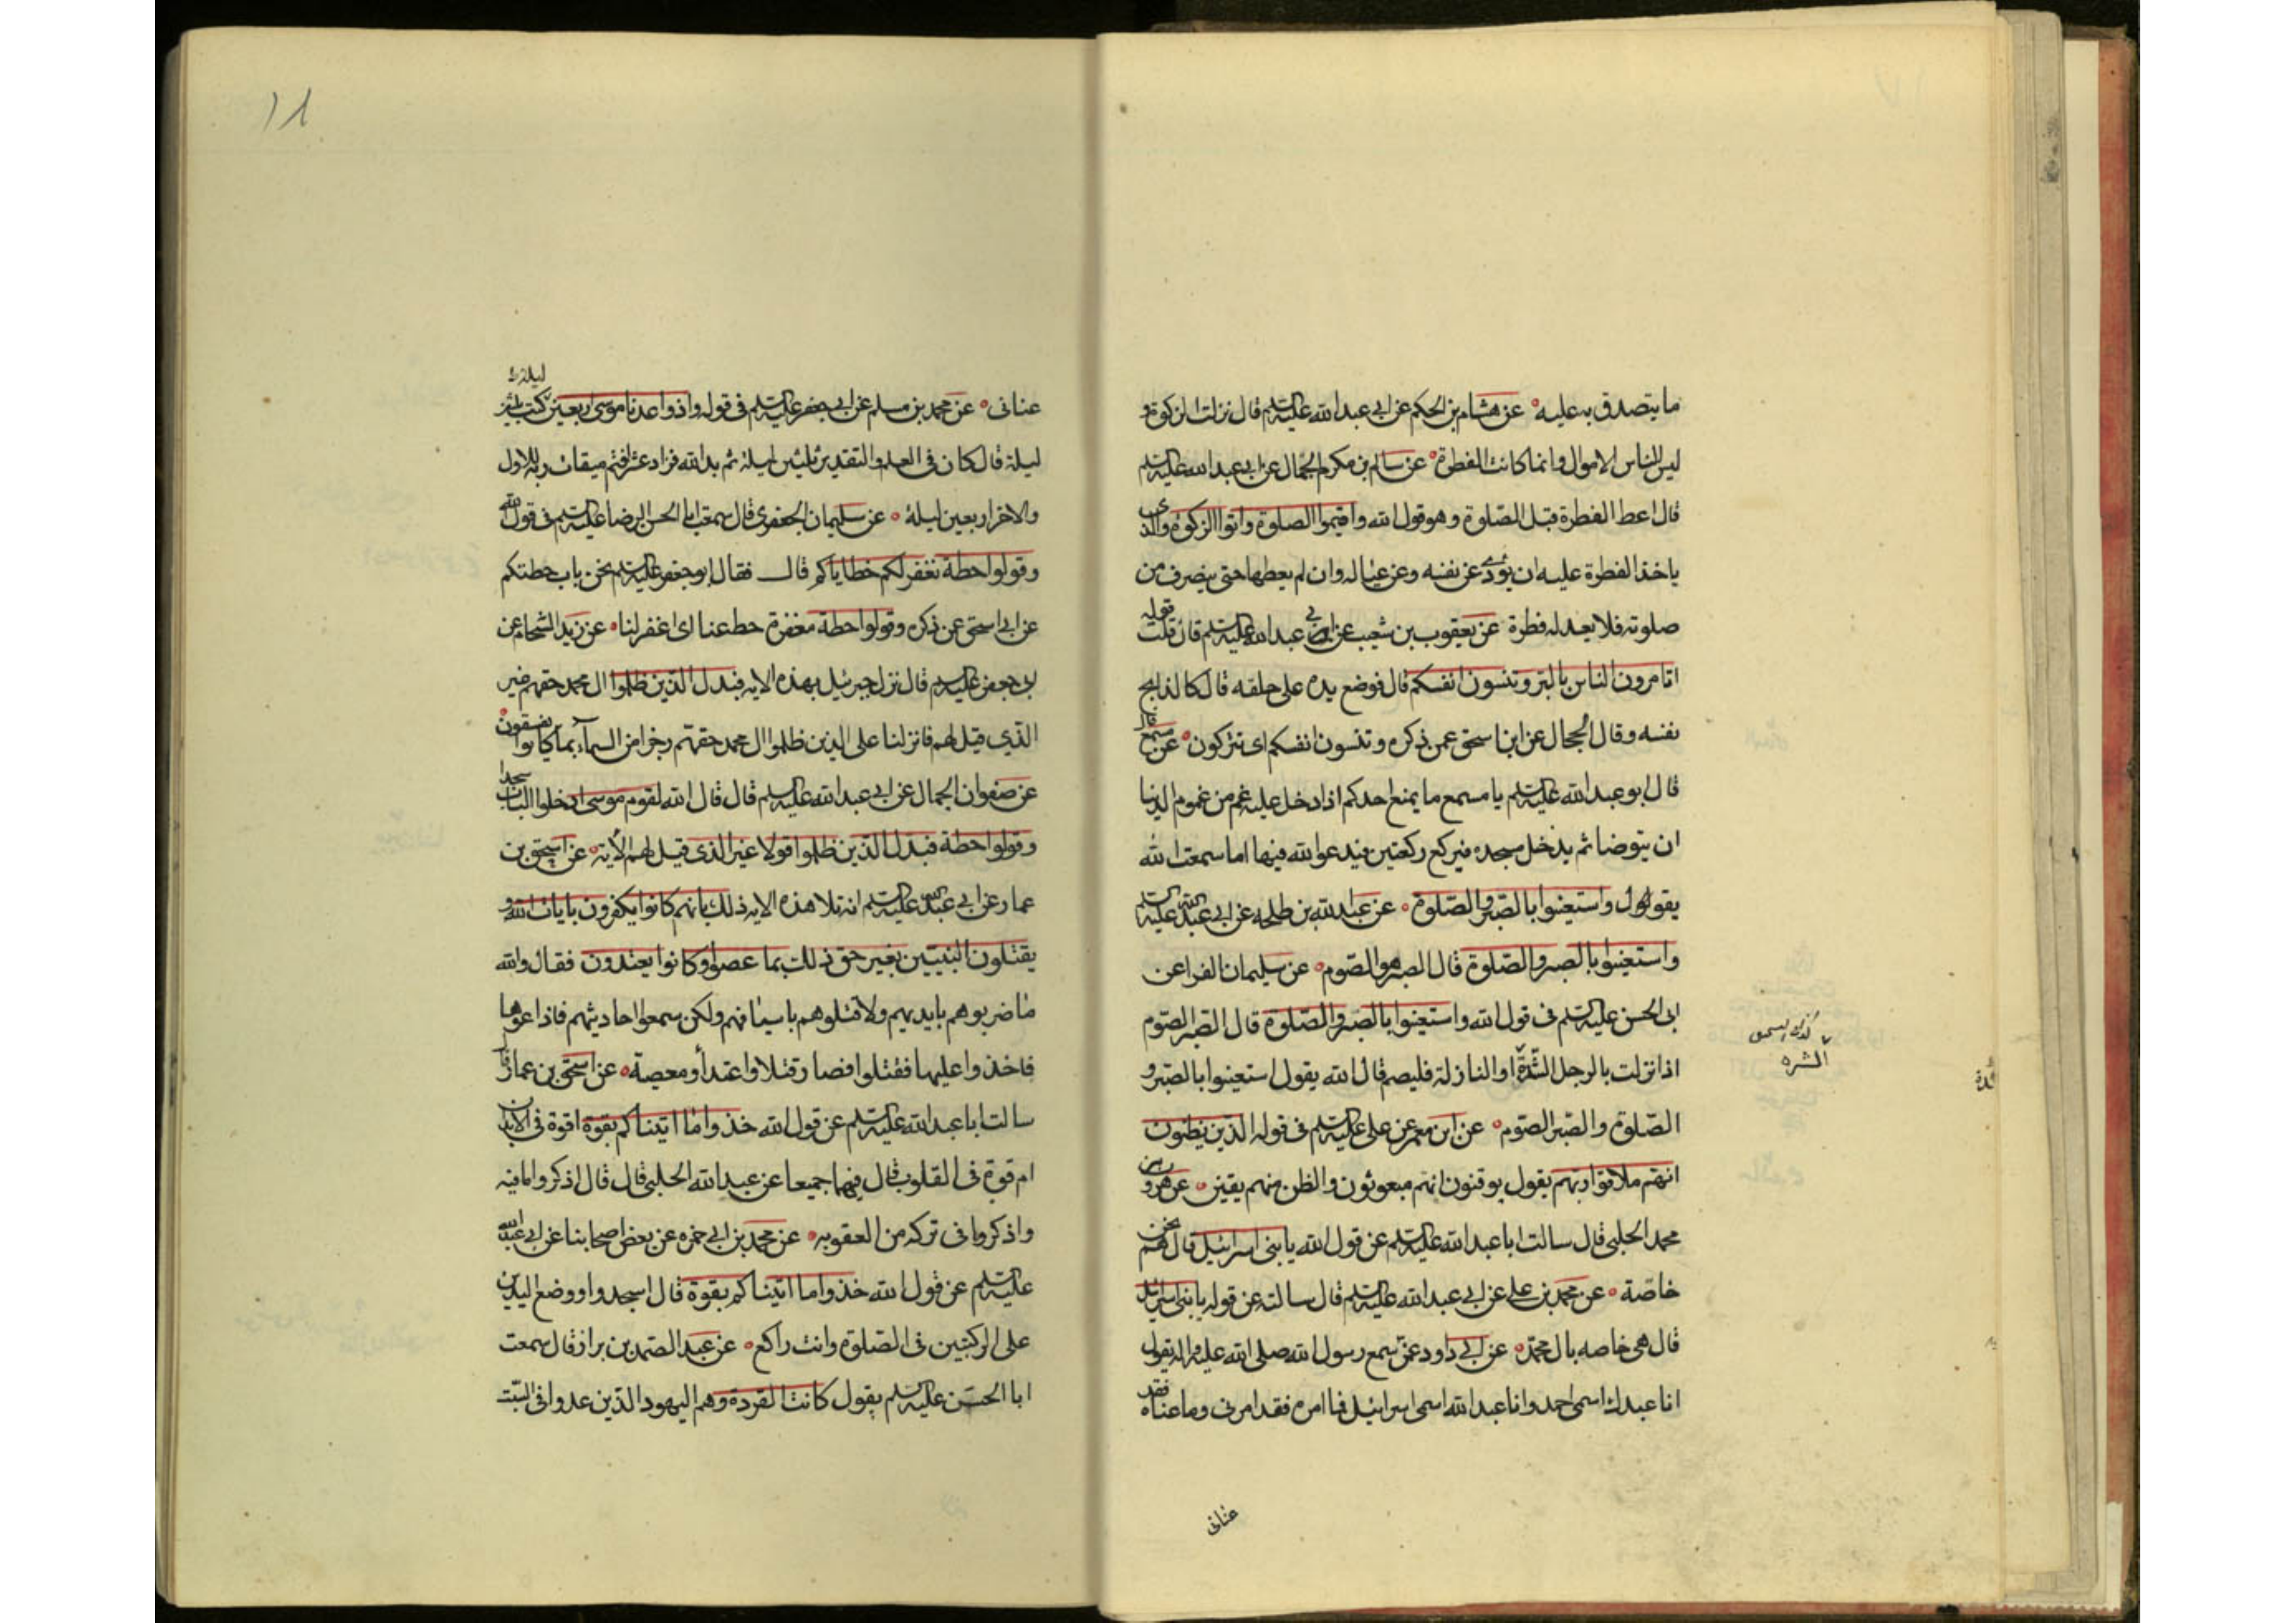 ما يتصدق به عليه عن هشام بن الحكم عن ابي عبد الله عليه السلم قال نزلت الزكوة و
ليس للناس الاموال وانما كانت الفطرة عن سالم بن مكرم الجمال عن ابي عبد الله عليه السلم
قال اعط الفطرة قبل الصلوة وهو قول الله واقيموا الصلوة واتوا الزكوة والذى
ياخذ الفطرة عليه ان يؤدى عن نفسه وعن عياله وان لم يعطها حتى ينصرف من
صلوته فلا يعد له فطرة عن يعقوب بن شعيب عن ابي عبد الله عليه السلم قال قلت قوله
اتامرون الناس بالبر وتنسون انفسكم قال فوضع يده على حلقه قال كالذابح
نفسه وقال الحجال عن ابن اسحق عمن ذكره وتنسون انفسكم اى تتركون عن مسمع قال
قال ابو عبد الله عليه السلم يا مسمع ما يمنع احدكم اذا دخل عليه غم من غموم الدنيا
ان يتوضا ثم يدخل مسجده فيركع ركعتين فيدعو الله فيها اما سمعت الله
يقول واستعينوا بالصبر والصلوة عن عبد الله بن طلحه عن ابي عبد الله عليه السلم
واستعينوا بالصبر والصلوة قال الصبر هو الصوم عن سليمان الفرا عن
ابى الحسن عليه السلم فى قول الله واستعينوا بالصبر والصلوة قال الصبر الصوم
اذا نزلت بالرجل الشدة او النازلة فليصم قال الله يقول استعينوا بالصبر و
الصلوة والصبر الصوم عن ابن معمر عن على عليه السلم فى قوله الذين يظنون
انهم ملاقوا ربهم يقول يوقنون انهم مبعوثون والظن منهم يقين عن هرون بن
محمد الحلبى قال سالت ابا عبد الله عليه السلم عن قول الله يا بنى اسرائيل قال هم نحن
خاصة عن محمد بن على عن ابي عبد الله عليه السلم قال سالته عن قوله يا بنى اسرائيل
قال هى خاصه بال محمد عن ابي داود عمن سمع رسول الله صلى الله عليه واله يقول
انا عبدك اسمى احمد وانا عبد الله اسمى اسرائيل فما امره فقد امرنى وما عناه فقد
عنانى
الشره
١٨
ليلة
عنانى عن محمد بن مسلم عن ابي جعفر عليه السلم فى قوله واذ واعدنا موسى اربعين
ليلة قال كان فى العلم والتقدير ثلثين ليلة ثم بدا لله فزاد عشرا فتم ميقات ربه للاول
والاخر اربعين ليلة عن سليمان الجعفرى قال سمعت ابا الحسن الرضا عليه السلم فى قول الله
وقولوا حطة نغفر لكم خطاياكم قال فقال ابو جعفر عليه السلم نحن باب حطتكم
عن ابي اسحق عن ذكره وقولوا حطة مغفرة حط عنا اى اغفر لنا عن زيد الشحام عن
ابى جعفر عليه السلم قال نزل جبرئيل بهذه الايه فبدل الذين ظلموا ال محمد حقهم غير
الذى قيل لهم فانزلنا على الذين ظلموا ال محمد حقهم رجزا من السماء بما كانوا يفسقون
عن صفوان الجمال عن ابي عبد الله عليه السلم قال قال الله لقوم موسى ادخلوا الباب سجدا
وقولوا حطة فبدل الذين ظلموا قولا غير الذى قيل لهم الاية عن اسحق بن
عمار عن ابي عبد الله عليه السلم انه تلا هذه الايه ذلك بانهم كانوا يكفرون بايات الله و
يقتلون النبيين بغير حق ذلك بما عصوا وكانوا يعتدون فقال والله
ما ضربوهم بايديهم ولا قتلوهم باسيافهم ولكن سمعوا احاديثهم فاذاعوها
فاخذوا عليها فقتلوا فصار قتلا واعتداء ومعصية عن اسحق بن عمار قال
سالت ابا عبد الله عليه السلم عن قول الله خذوا ما اتيناكم بقوة اقوة فى الابدان
ام قوة فى القلوب قال فيهما جميعا عن عبيد الله الحلبى قال قال اذكروا ما فيه
واذكروا ما فى تركه من العقوبه عن محمد بن ابي حمزه عن بعض اصحابنا عن ابي عبد الله
عليه السلم عن قول الله خذوا ما اتيناكم بقوة قال اسجدوا ووضع اليدين
على الركبتين فى الصلوة وانت راكع عن عبد الصمد بن براز قال سمعت
ابا الحسن عليه السلم يقول كانت القردة وهم اليهود الذين عدوا فى السبت